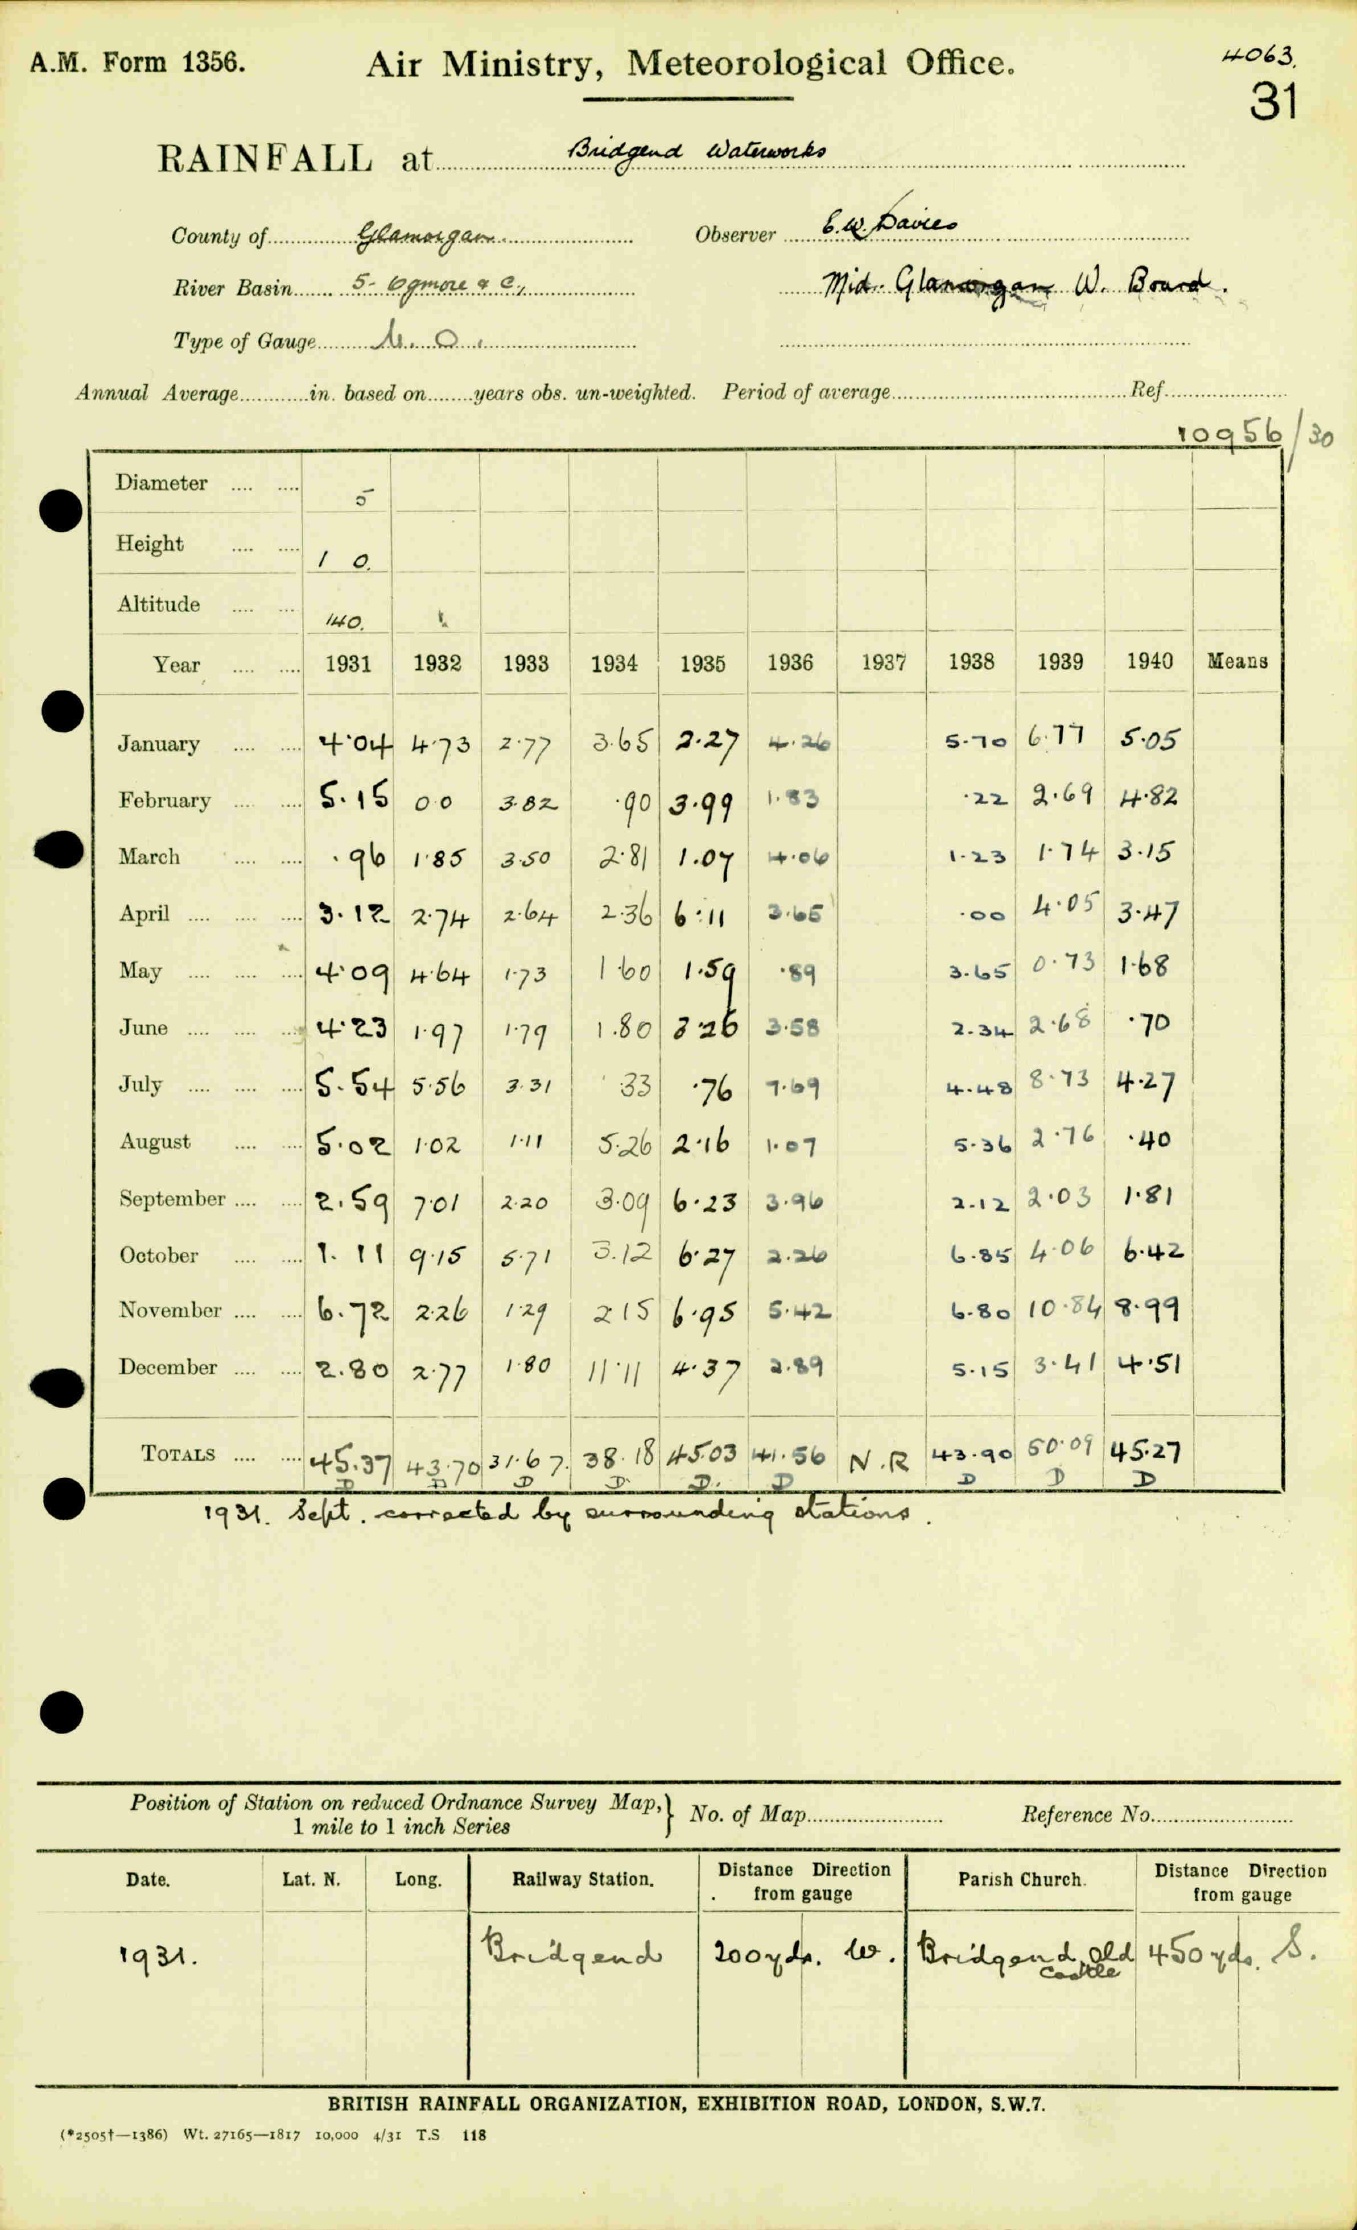 A.M. Form 1356.
Air Ministry, Meteorological Office.
4063.
31
RAINFALL at Bridgend Waterworks
County of Glamorgan Observer E.W. Davies
River Basin 5- Ogmore &c, Mid. Glamorgan W. Board.
Type of Gauge M.O.
Annual Average in. based on years obs. un-weighted. Period of average Ref.
10956/30
Diameter 5
Height 1 0.
Altitude 140.
Year 1931 1932 1933 1934 1935 1936 1937 1938 1939 1940 Means
January 4.04 4.73 2.77 3.65 2.27 4.26 5.70 6.77 5.05
February 5.15 0.0 3.82 .90 3.99 1.83 .22 2.69 4.82
March .96 1.85 3.50 2.81 1.07 4.06 1.23 1.74 3.15
April 3.12 2.74 2.64 2.36 6.11 3.65 .00 4.05 3.47
May 4.09 4.64 1.73 1.60 1.59 .89 3.65 0.73 1.68
June 4.23 1.97 1.79 1.80 3.26 3.58 2.34 2.68 .70
July 5.54 5.56 3.31 .33 .76 7.69 4.48 8.73 4.27
August 5.02 1.02 1.11 5.26 2.16 1.07 5.36 2.76 .40
September 2.59 7.01 2.20 3.09 6.23 3.96 2.12 2.03 1.81
October 1.11 9.15 5.71 3.12 6.27 2.26 6.85 4.06 6.42
November 6.72 2.26 1.29 2.15 6.95 5.42 6.80 10.84 8.99
December 2.80 2.77 1.80 11.11 4.37 2.89 5.15 3.41 4.51
TOTALS 45.37 43.70 31.67. 38.18 45.03 41.56 N.R 43.90 50.09 45.27
D D D D D. D D D D
1931. Sept. corrected by surrounding stations.
Position of Station on reduced Ordnance Survey Map,
1 mile to 1 inch Series
No. of Map Reference No.
Date. Lat. N. Long. Railway Station. Distance Direction from gauge Parish Church. Distance Direction from gauge
1931. Bridgend 200yds. W. Bridgend, Old Castle 450yds. S.
BRITISH RAINFALL ORGANIZATION, EXHIBITION ROAD, LONDON, S.W.7.
(*2505†—1386) Wt. 27165—1817 10,000 4/31 T.S 118